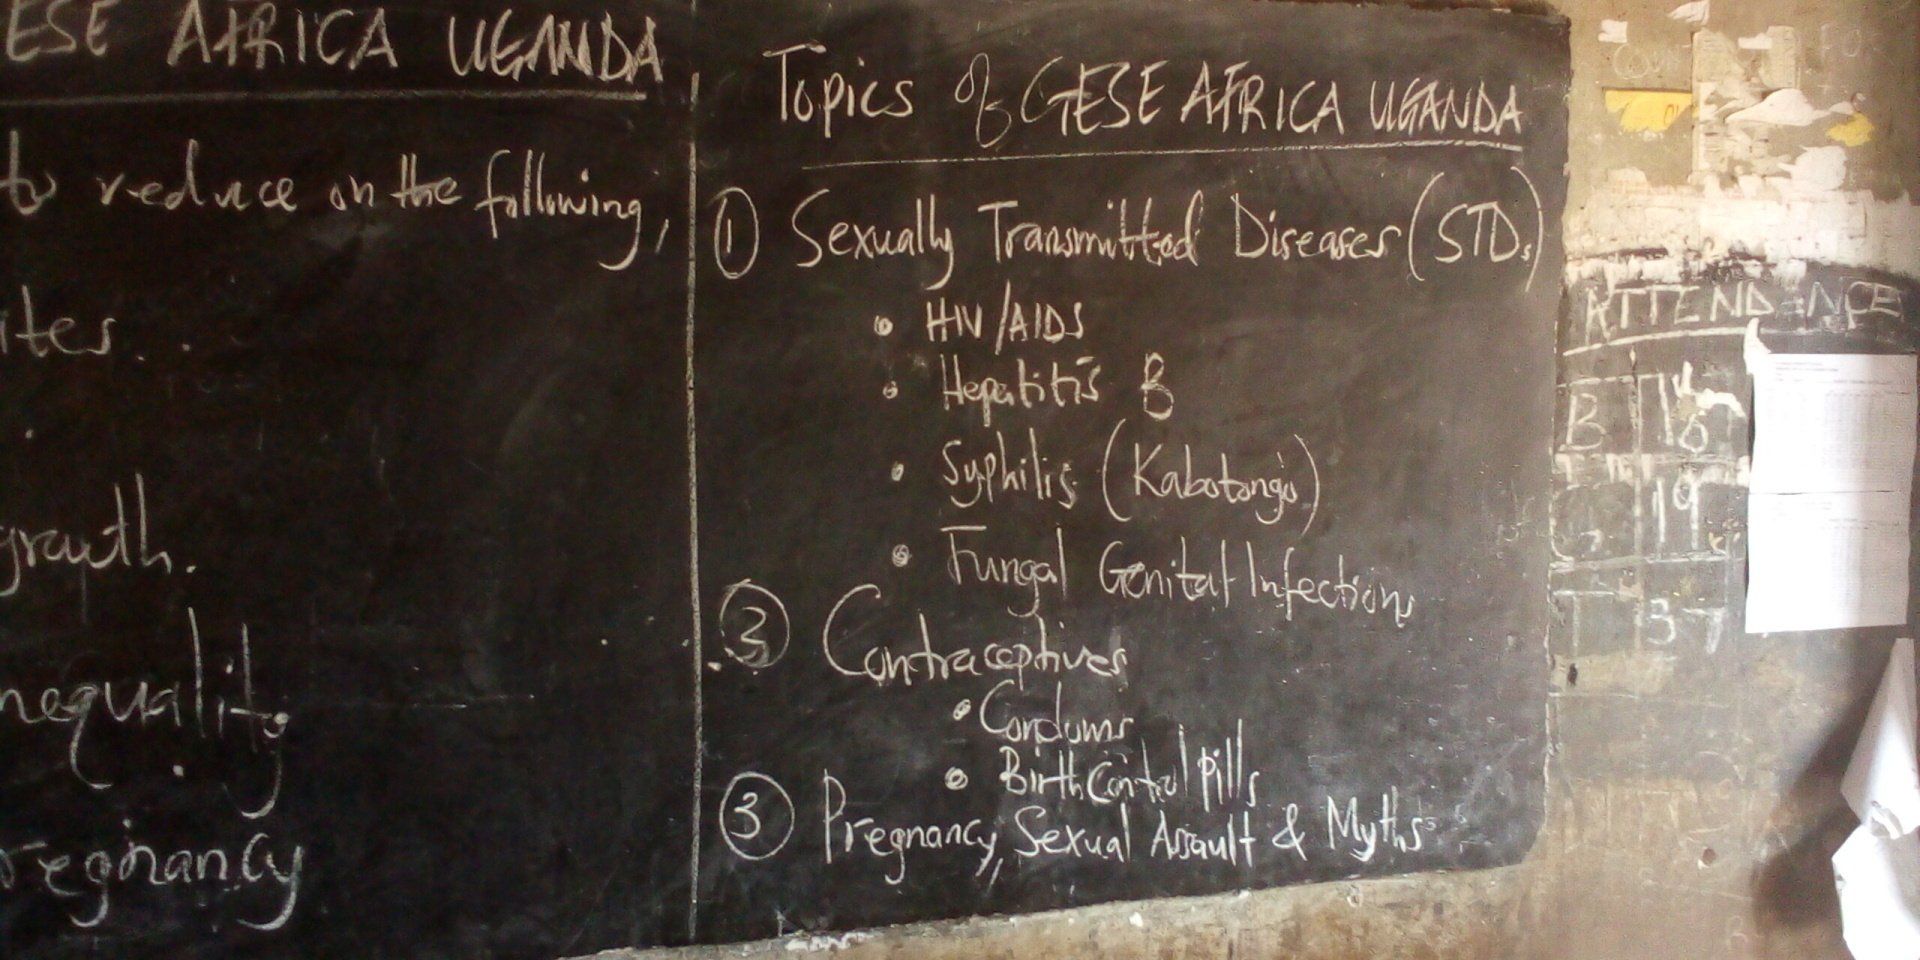 ESE AFRICA UGANDA
to reduce on the following,
growth.
Topics of GESE AFRICA UGANDA
① Sexually Transmitted Diseases (STDs)
• HIV/AIDS
• Hepatitis B
• Syphilis (Kabotongo)
• Fungal Genital Infections
② Contraceptives
• Condoms
• Birth Control Pills
③ Pregnancy, Sexual Assault & Myths
ATTENDENCE
B
G 19
T 37